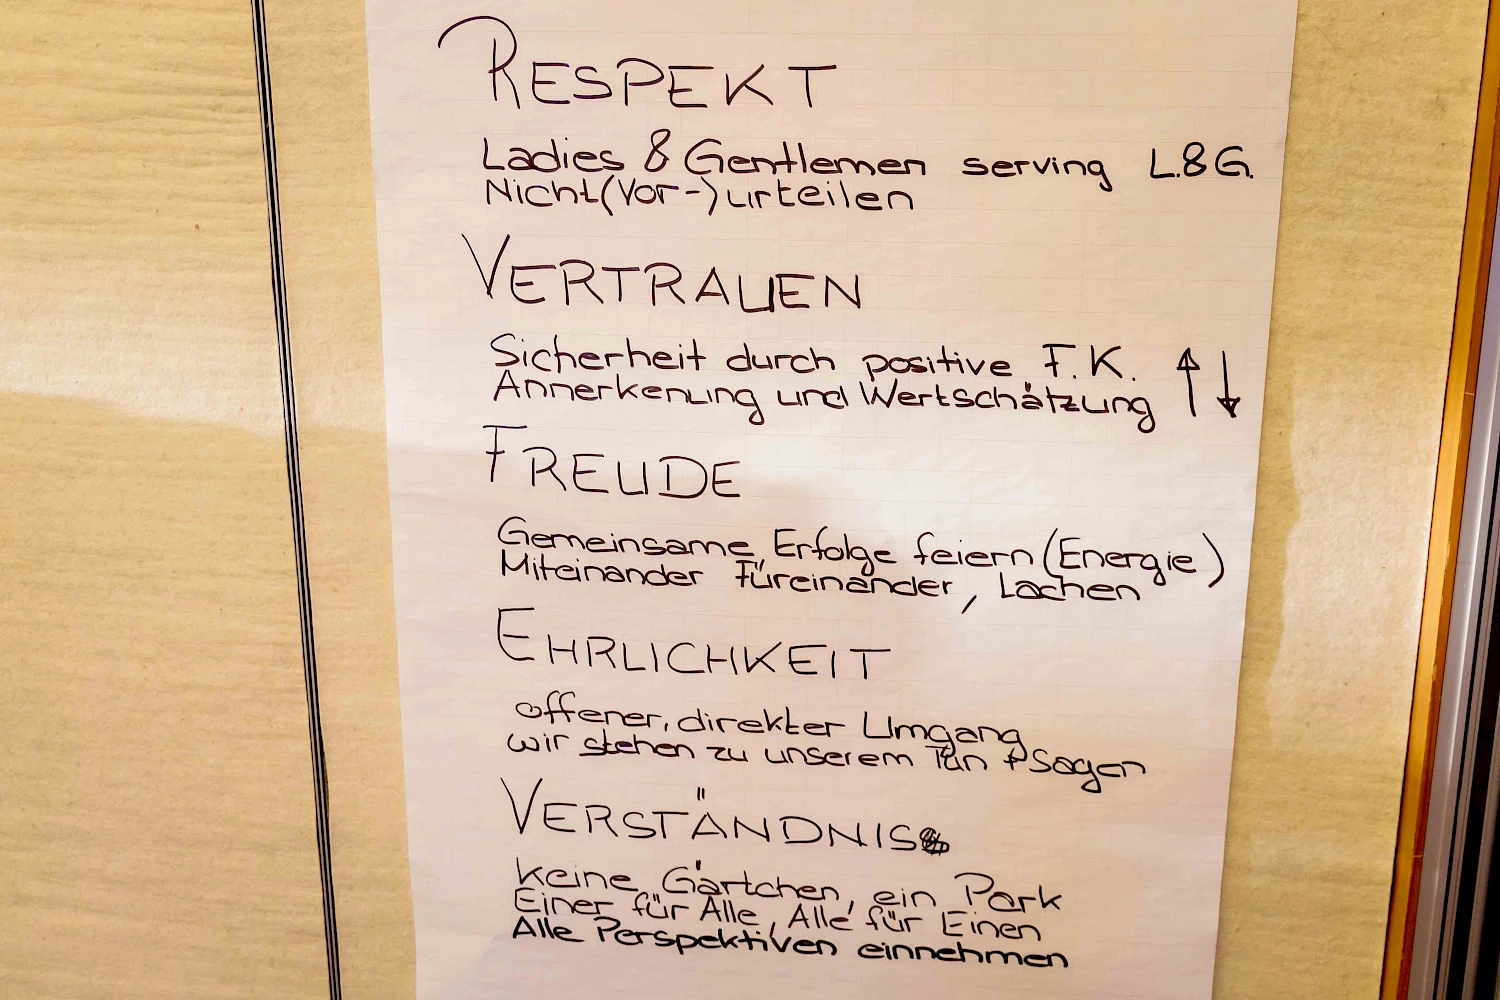 RESPEKT
Ladies & Gentlemen serving L.&G.
Nicht(Vor-)urteilen
VERTRAUEN
Sicherheit durch positive F.K. ↑↓
Annerkenung und Wertschätzung
FREUDE
Gemeinsame Erfolge feiern (Energie)
Miteinander Füreinander, Lachen
EHRLICHKEIT
offener, direkter Umgang
wir stehen zu unserem Tun + Sagen
VERSTÄNDNIS
Keine Gärtchen, ein Park
Einer für Alle, Alle für Einen
Alle Perspektiven einnehmen